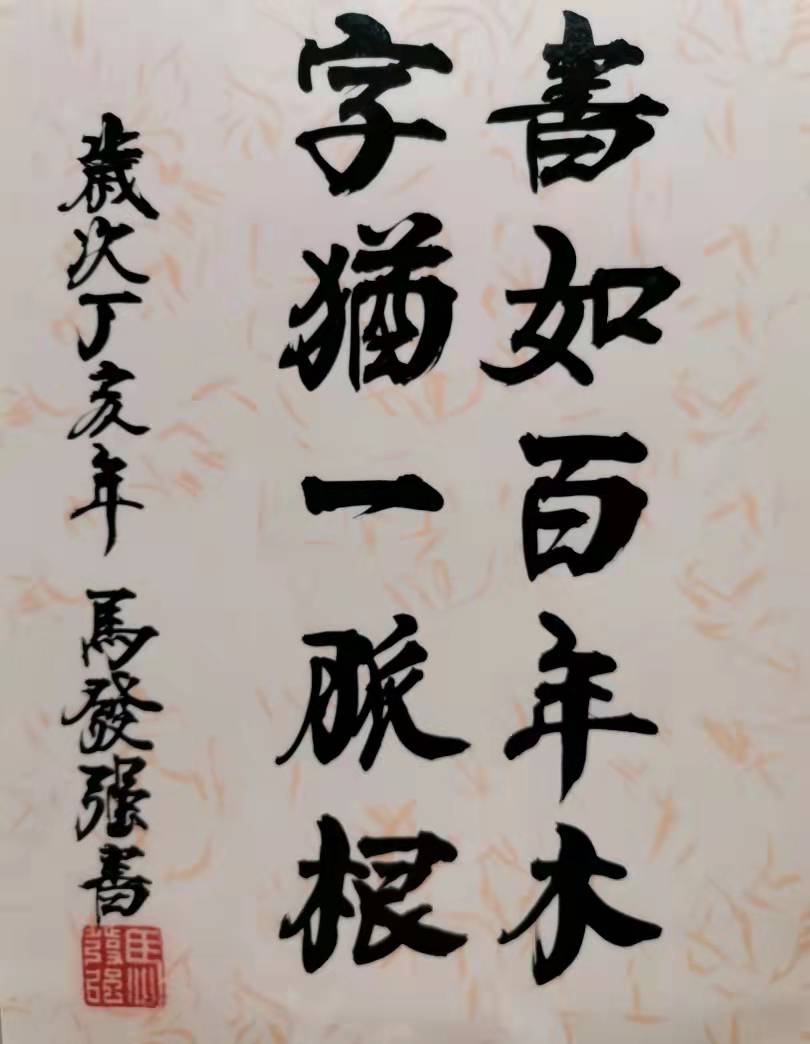 書如百年木
字猶一脈根
歲次丁亥年 馬發強書